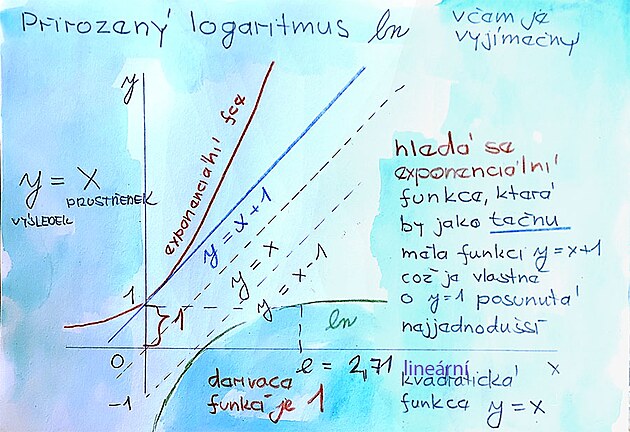 Prirozený logaritmus ln
včem je
vyjímečný
y
y = x
PROSTŘEDEK
VÝSLEDEK
exponenciální fce
y = x+1
y = x
y = x-1
hledá se
exponenciální
funkce, ktará
by jako tečnu
měla funkci y=x+1
což je vlastně
o y=1 posunutá
najjednodušší
lineární
kvadratická
funkce y = x
1
1
0
-1
ln
e = 2,71
x
derivace
funkcí je 1